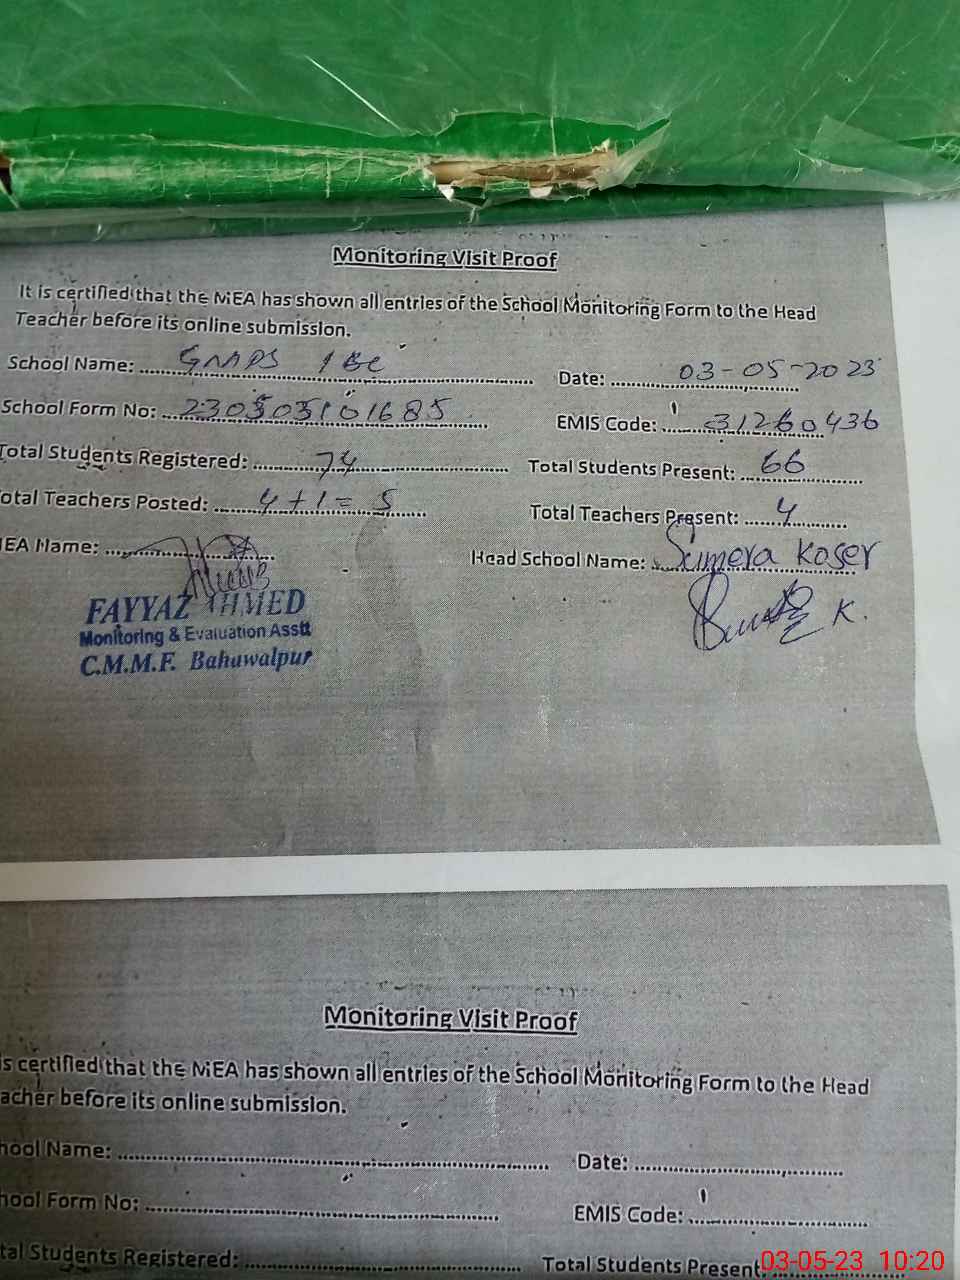 Monitoring Visit Proof
It is certified that the MEA has shown all entries of the School Monitoring Form to the Head
Teacher before its online submission.
School Name: GMMPS 1 BC Date: 03-05-2023
School Form No: 230503101685 EMIS Code: 31260436
Total Students Registered: 74 Total Students Present: 66
otal Teachers Posted: 4+1=5 Total Teachers Present: 4
IEA Name: Head School Name: Sumera Koser
K.
FAYYAZ AHMED
Monitoring & Evaluation Asstt
C.M.M.F. Bahawalpur
Monitoring Visit Proof
is certified that the MEA has shown all entries of the School Monitoring Form to the Head
acher before its online submission.
hool Name: Date:
hool Form No: EMIS Code:
tal Students Registered: Total Students Present:
03-05-23 10:20